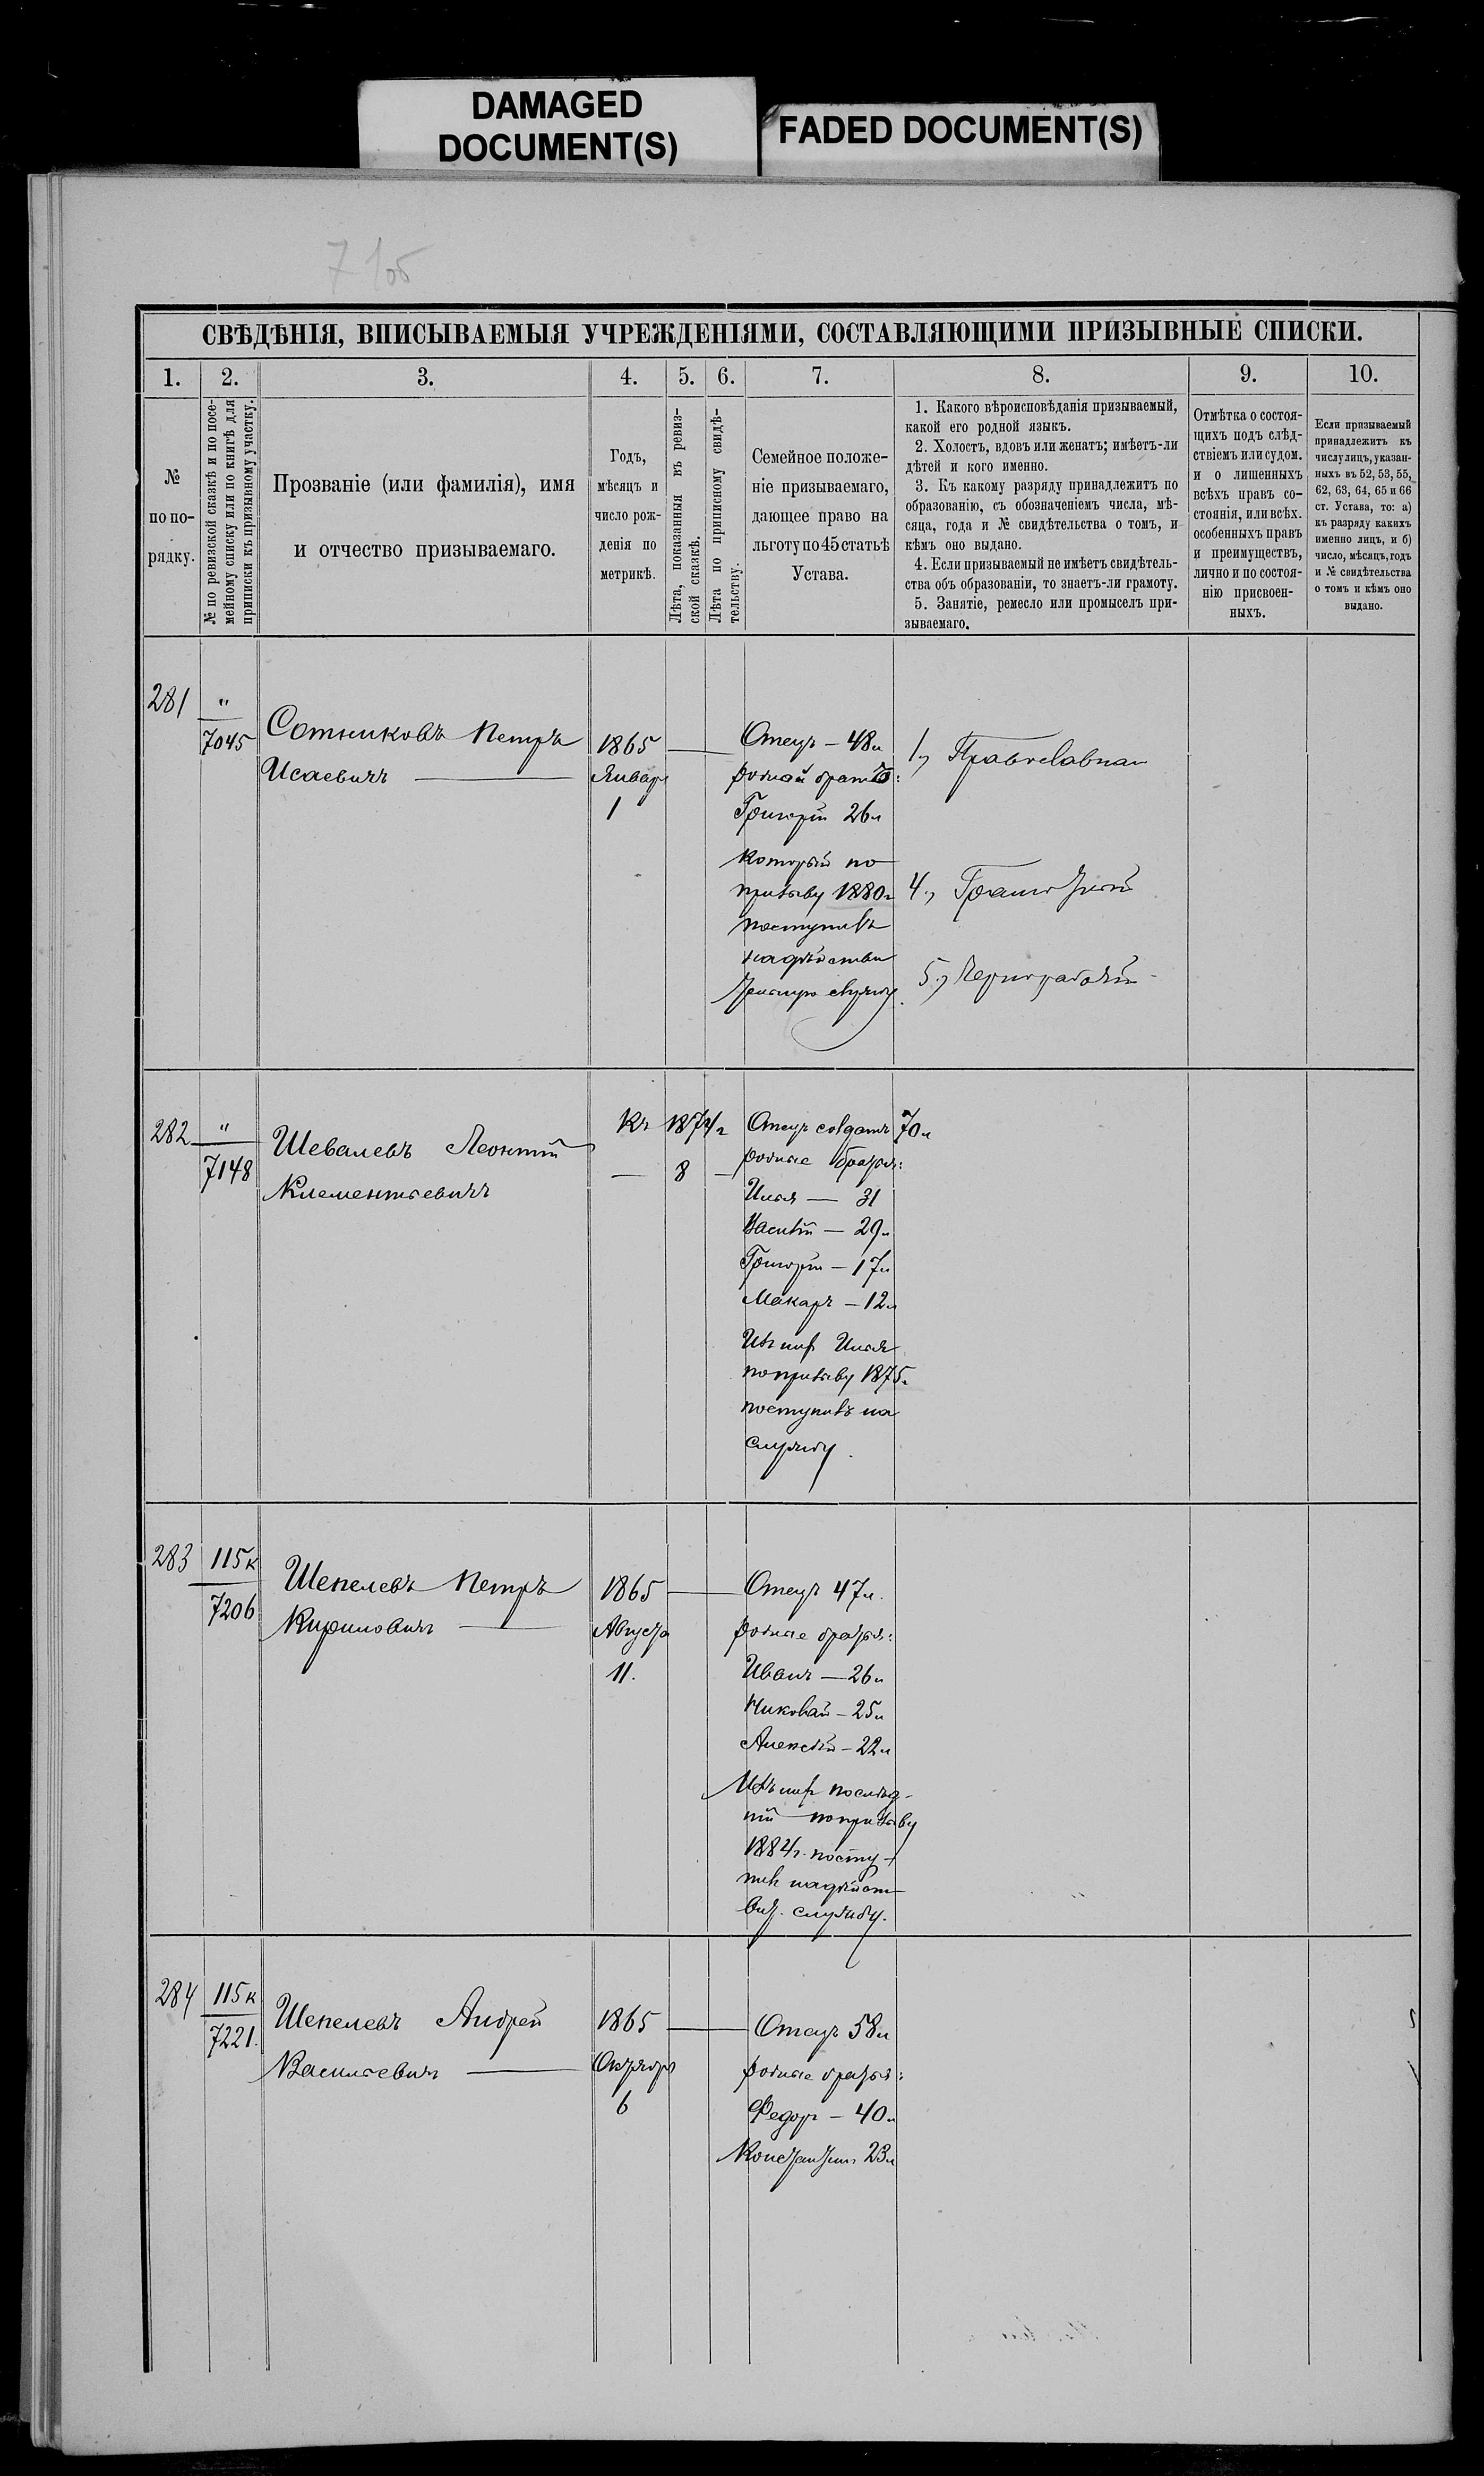 DAMAGED
DOCUMENT(S)
FADED DOCUMENT(S)
СВѢДѢНІЯ, ВПИСЫВАЕМЫЯ УЧРЕЖДЕНІЯМИ, СОСТАВЛЯЮЩИМИ ПРИЗЫВНЫЕ СПИСКИ.
1. 2. 3. 4. 5. 6. 7. 8. 9. 10.
№
по по-
рядку.
№ по ревизской сказкѣ и по посе-
мейному списку или по книгѣ для
приписки къ призывному участку.
Прозваніе (или фамилія), имя
и отчество призываемаго.
Годъ,
мѣсяцъ и
число рож-
денія по
метрикѣ.
Лѣта, показанныя въ ревиз-
ской сказкѣ.
Лѣта по приписному свидѣ-
тельству.
Семейное положе-
ніе призываемаго,
дающее право на
льготу по 45 статьѣ
Устава.
1. Какого вѣроисповѣданія призываемый,
какой его родной языкъ.
2. Холостъ, вдовъ или женатъ; имѣетъ-ли
дѣтей и кого именно.
3. Къ какому разряду принадлежитъ по
образованію, съ обозначеніемъ числа, мѣ-
сяца, года и № свидѣтельства о томъ, и
кѣмъ оно выдано.
4. Если призываемый не имѣетъ свидѣтель-
ства объ образованіи, то знаетъ-ли грамоту.
5. Занятіе, ремесло или промыселъ при-
зываемаго.
Отмѣтка о состоя-
щихъ подъ слѣд-
ствіемъ или судом.
и о лишенныхъ
всѣхъ правъ со-
стоянія, или всѣх.
особенныхъ правъ
и преимуществъ,
лично и по состоя-
нію присвоен-
ныхъ.
Если призываемый
принадлежитъ къ
числу лицъ, указан-
ныхъ въ 52, 53, 55,
62, 63, 64, 65 и 66
ст. Устава, то: а)
къ разряду какихъ
именно лицъ, и б)
число, мѣсяцъ, годъ
и № свидѣтельства
о томъ и кѣмъ оно
выдано.
281
"
7045
Сотниковъ Петръ
Исаевичъ
1865
Январ
1
Отецъ – 48л
родной братъ:
Григорій 26л
который по
призыву 1880г
поступилъ
на дѣйстви
тельную службу
1, Православная
4, Грамотный
5, Чернорабочій
282
"
7148
Шевалевъ Леонтій
Клементьевичъ
Къ 1874г
— 8 —
Отецъ солдатъ 70л
родные братья:
Илья — 31
Василій — 29л
Григорій – 17л
Макаръ – 12л
Изъ нихъ Илья
по призыву 1875г
поступилъ на
службу.
283
115к
7206
Шепелевъ Петръ
Кириловичъ
1865
Августа
11.
Отецъ 47л.
родные братья:
Иванъ — 26л
Николай – 25л
Алексѣй – 22л
Изъ нихъ послѣд-
ній по призыву
1884г. посту-
пилъ на дѣйст
вит. службу.
284
115к
7221.
Шепелевъ Андрей
Васильевичъ
1865
Октября
6
Отецъ 58л
родные братья:
Федоръ – 40л
Константинъ 23л